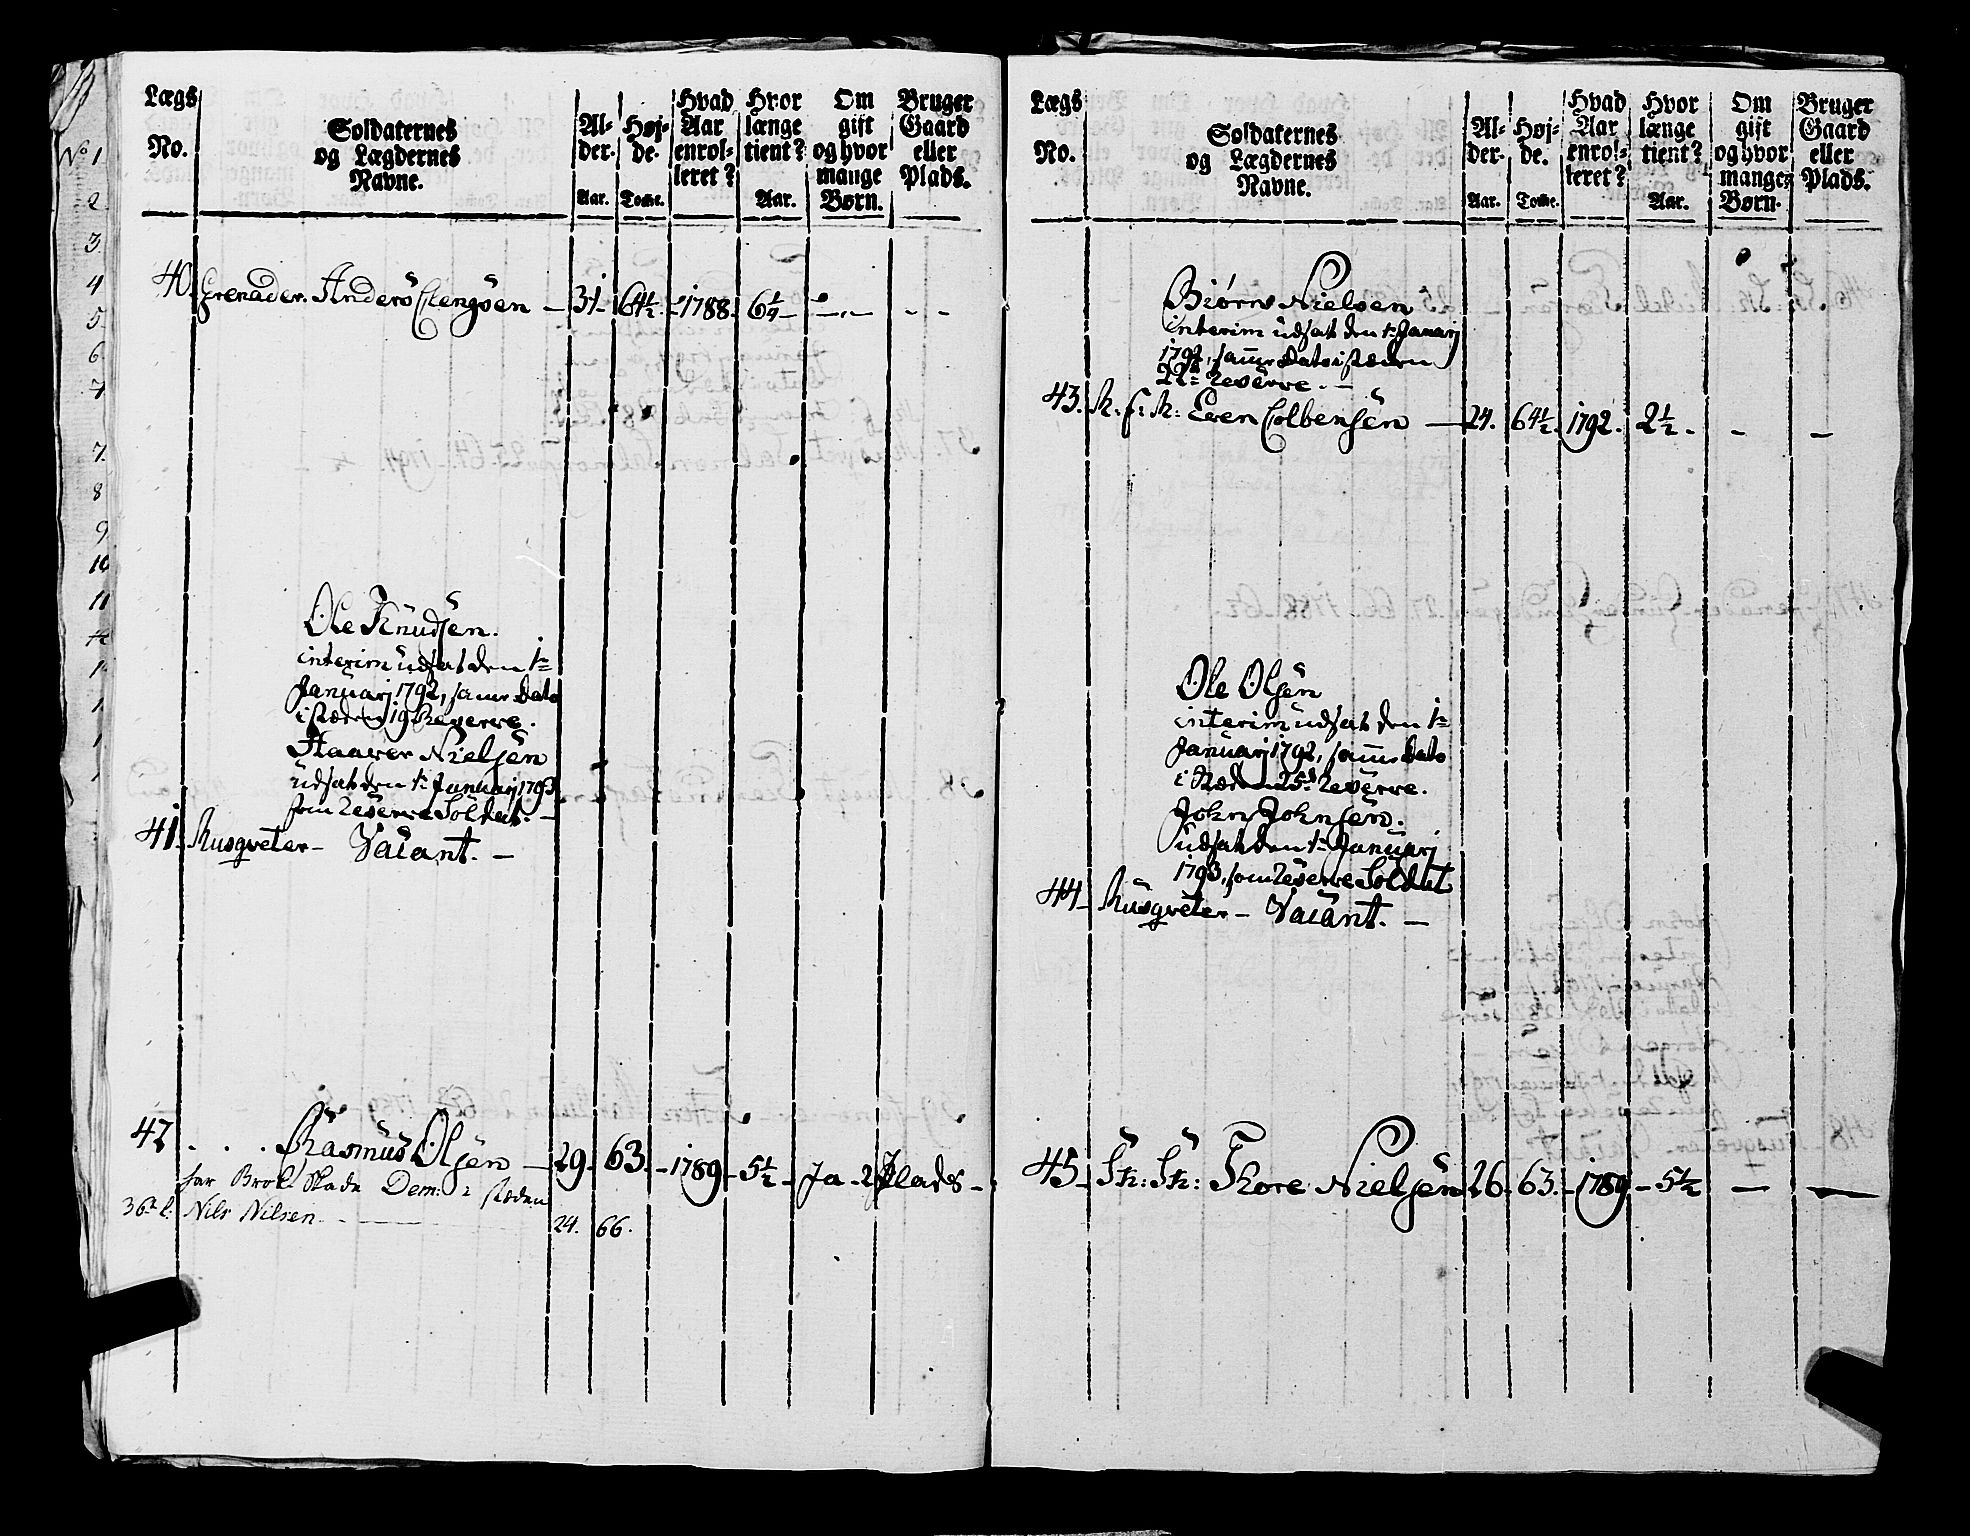 Lægs No.
Soldaternes og Lægdernes Navne.
Al- der. Aar.
Høj- de. Tomme.
Hvad Aar enrol- leret?
Hvor længe tient? Aar.
Om gift og hvor mange Børn.
Bruger Gaard eller Plads.
No 1
2
3
4
5
6
7
7.
8
9
10
11
40. Grenader. Anders Clengsen - 31 - 64½ - 1788 - 6¼ - - -
Ole Knudsen.
interim udsat den 1te
Januarj 1792, samme Dato
i steden 19de Reserve.
Haaver Nielsen
udsat den 1te Januarj 1793
som Reserve Soldat. -
41. Musqveter - Vacant. -
42 . . . Rasmus Olsen - 29 - 63. - 1789 - 5½ - Ja - 2 Plads -
har Brok Skade Dem: i steden
36te R. Nils Nilsen - - - 24. 66.
Lægs No.
Soldaternes og Lægdernes Navne.
Al- der. Aar.
Høj- de. Tomme.
Hvad Aar enrol- leret?
Hvor længe tient? Aar.
Om gift og hvor mange Børn.
Bruger Gaard eller Plads.
Biørn Nielsen
interim udsat den 1te Januarj
1792, samme Dato i steden
22de Reserve. -
43. Even Colbensen - 24. 64½. 1792. 2½ - - -
Ole Olsen
interim udsat den 1te
Januarj 1792, samme Dato
i steden 25de Reserve.
John Johnsen.
udsat den 1te Januarj
1793, som Reserve Soldat
44 - Musqveter - Vacant. -
45 - Sk: Sk: Thore Nielsen 26. 63. - 1789 - 5½ - -